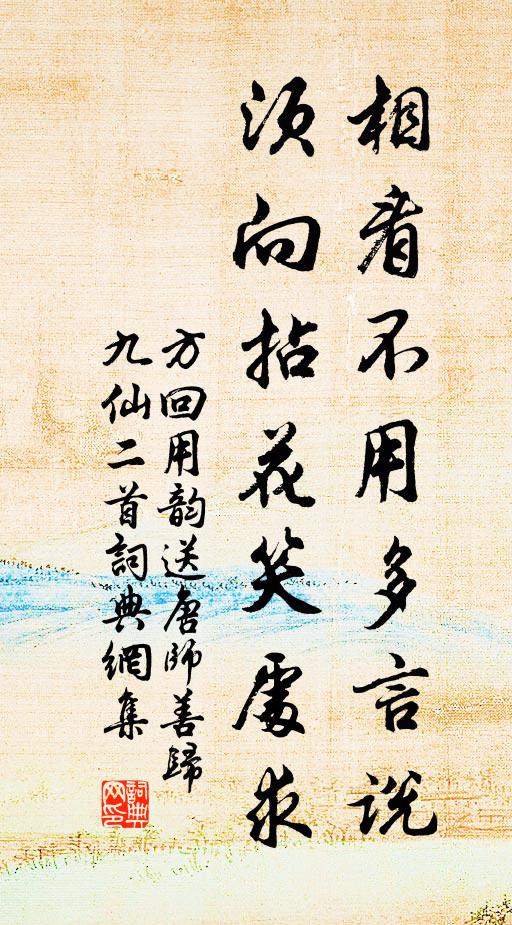 相看不用多言說
須向拈花笑處求
方回用韵送唐師善歸
九仙二首詞典網集
詞典
网印